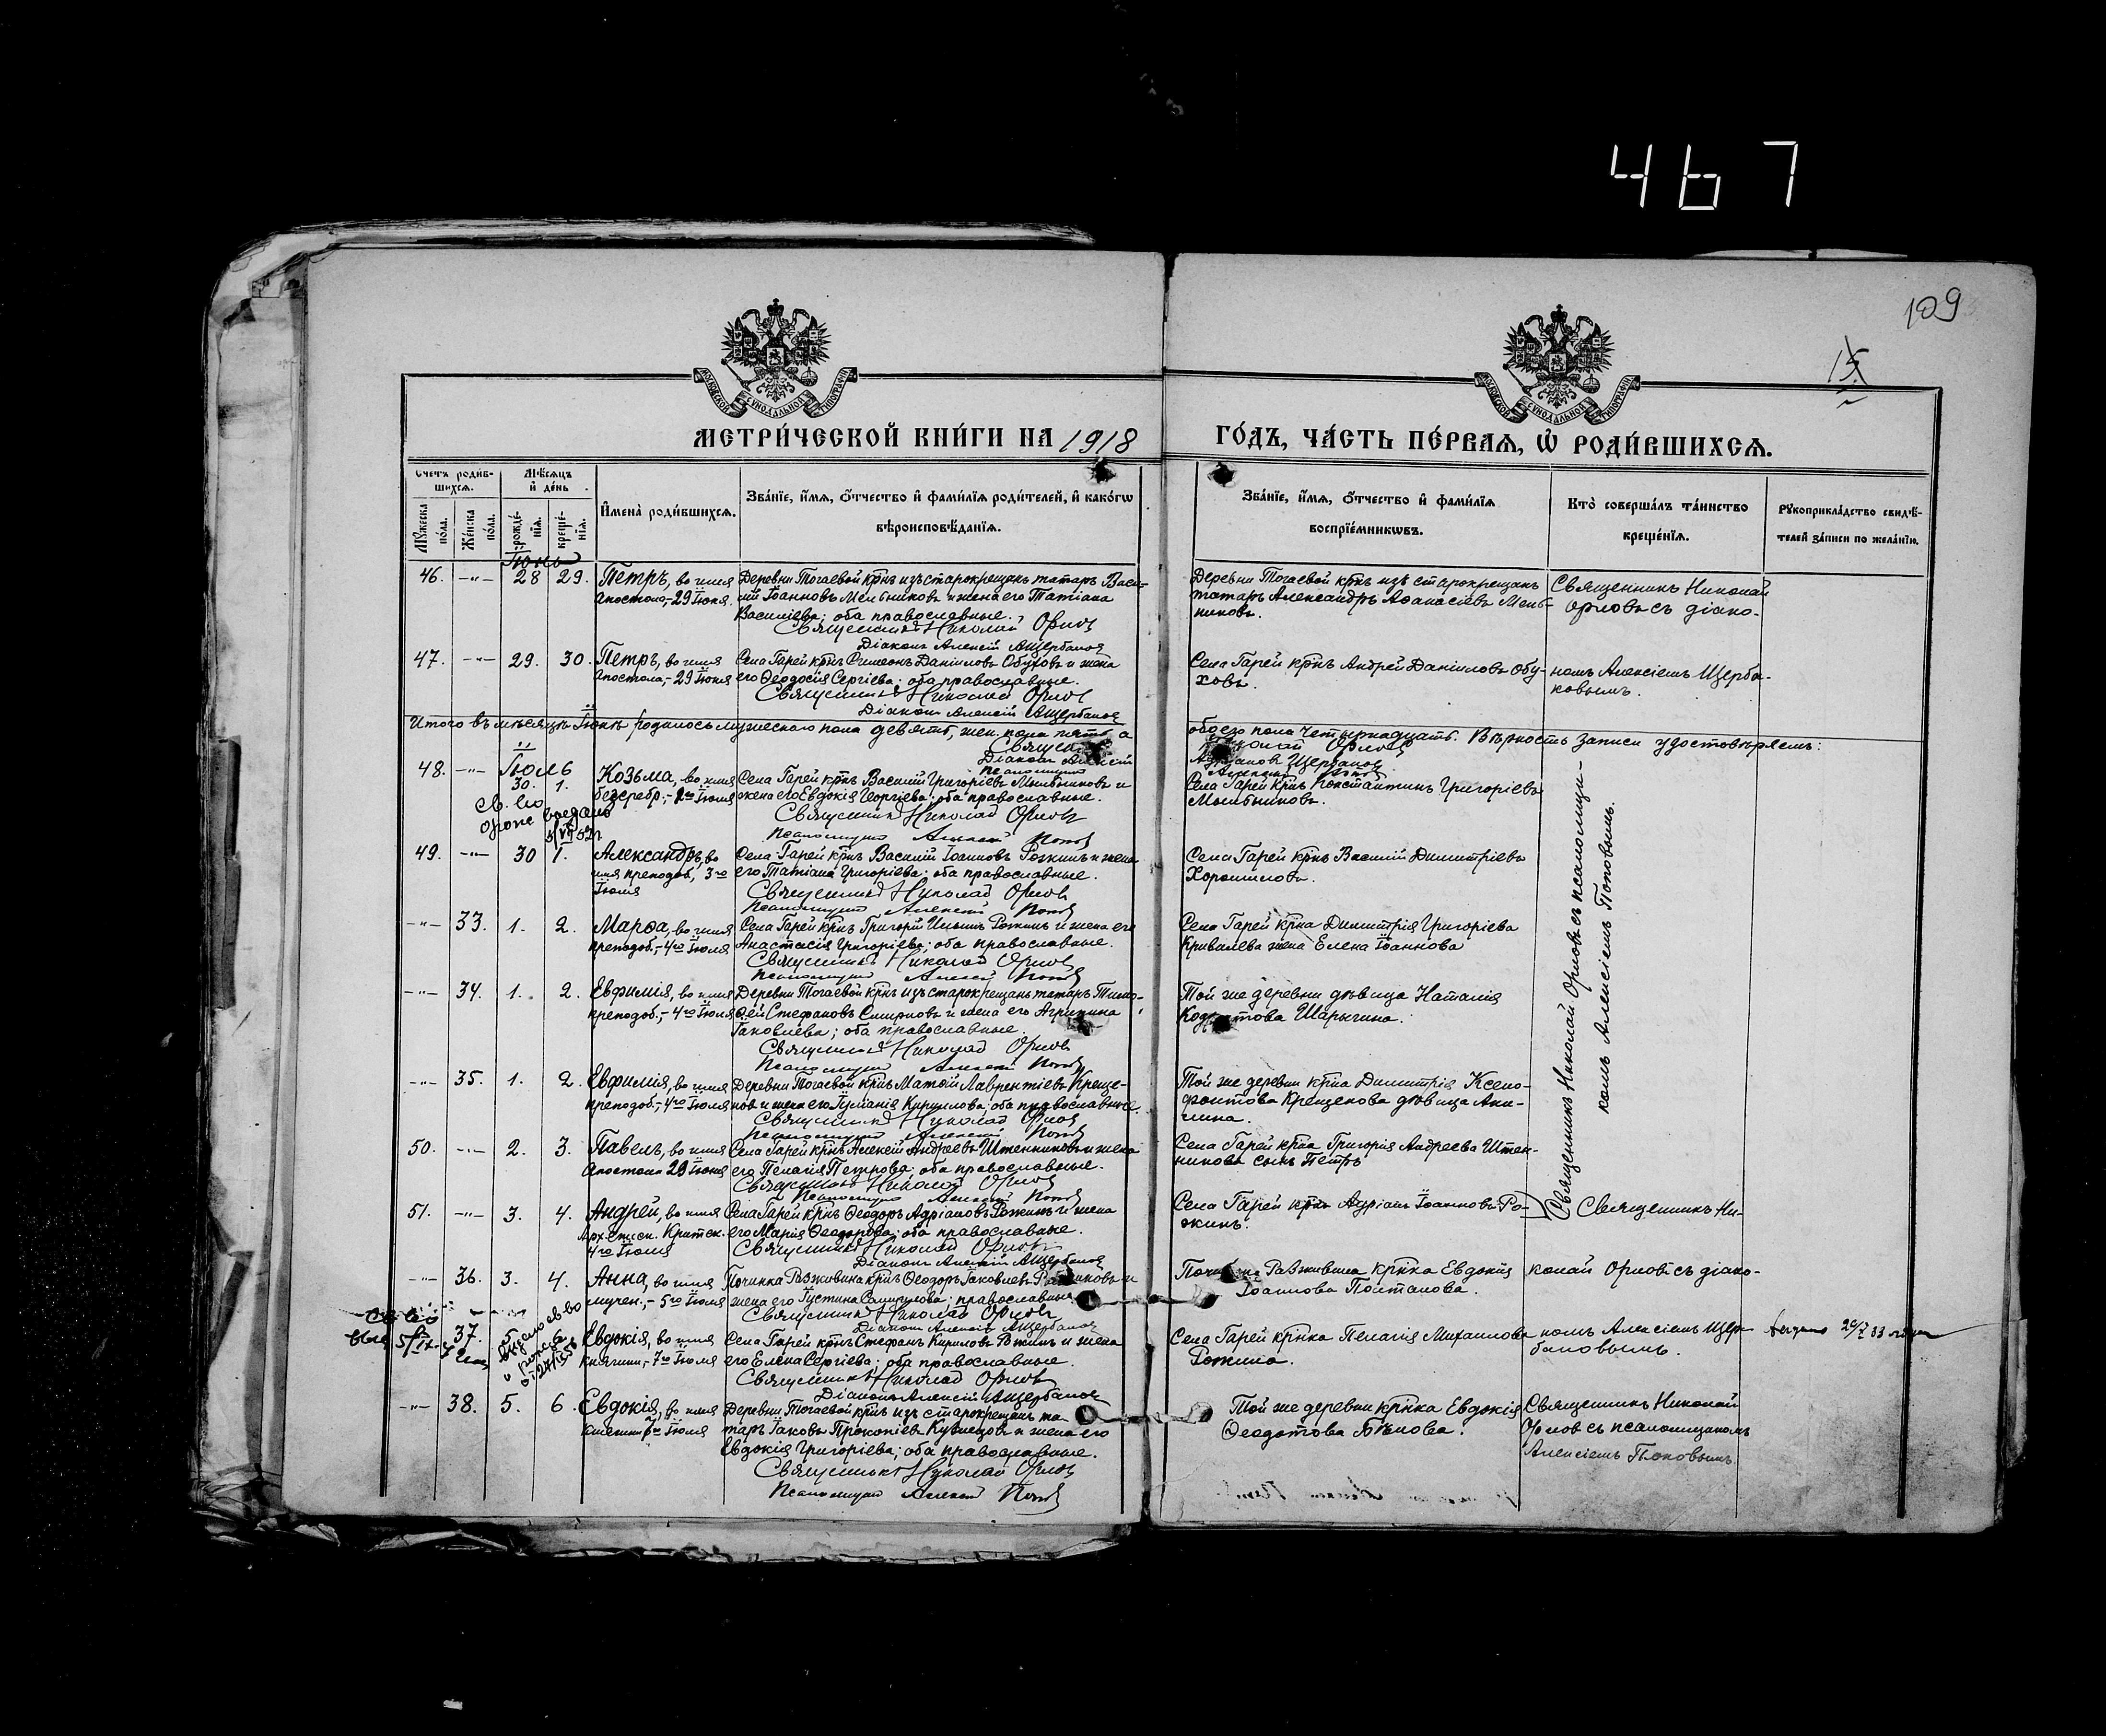 467
109
15.
МОСКОВСКОЙ СѴНОДАЛЬНОЙ ТИПОГРАФІИ
МОСКОВСКОЙ СѴНОДАЛЬНОЙ ТИПОГРАФІИ
МЕТРИ́ЧЕСКОЙ КНИ́ГИ НА 1918 ГО́ДЪ, ЧА́СТЬ ПЕ́РВАЯ, Ѡ҆ РОДИ́ВШИХСЯ.
Счетъ роди́вшихся.
Мꙋ́жеска по́ла.
Же́нска по́ла.
Мѣ́сяцъ и҆ де́нь.
рожде́нїя.
креще́нїя.
И҆мена̀ роди́вшихся.
Зва́нїе, и҆́мя, ѻ҆́тчество и҆ фами́лїя роди́телей, и҆ како́гѡ
вѣроисповѣ́данїя.
Зва́нїе, и҆́мя, ѻ҆́тчество и҆ фами́лїя
воспрїе́мникѡвъ.
Кто̀ соверша́лъ та́инство
креще́нїя.
Рꙋкоприкла́дство свидѣ́-
телей за́писи по жела́нїю.
Іюнь
46. -"- 28 29. Петръ, во имя
апостола,- 29 Іюня.
Деревни Тогаевой крнъ изъ старокрещенъ татаръ Васи-
лій Іоанновъ Мельниковъ и жена его Татіана
Василіева; оба православные.
Священникъ Николай Орлов
Діаконъ Алексій Щербаков
Деревни Тогаевой крнъ изъ старокрещенъ
татаръ Александръ Аѳанасіевъ Мель-
никовъ.
Священникъ Николай
Орловъ съ діако-
47. -"- 29. 30. Петръ, во имя
апостола,- 29 Іюня
Села Гарей крнъ Симеонъ Даніиловъ Обуховъ и жена
его Ѳеодосія Сергіева; оба православные.
Священникъ Николай Орлов
Діаконъ Алексій Щербаков
Села Гарей крнъ Андрей Даніиловъ Обу-
ховъ.
номъ Алексіемъ Щерба-
ковымъ.
Итого въ мѣсяцѣ Іюнѣ родилось мужескаго пола девять, жен. пола пять, а
обоего пола четырнадцать. Вѣрность записи удостовѣряемъ:
Священ
Николай Орлов
Діаконъ Алексій
Щербаков
Псаломщикъ
Алексій Попов
Іюль
48. -"- 30. 1. Козьма, во имя
безсребр.,- 1го Іюля
Села Гарей крнъ Василій Григоріевъ Мыльниковъ и
жена его Евдокія Георгіева; оба православные.
Священникъ Николай Орлов
Псаломщикъ Алексій Попов
Села Гарей крнъ Константинъ Григоріевъ
Мыльниковъ.
49. -"- 30 1. Александръ, во
имя преподоб., 3го
Іюля
Села Гарей крнъ Василій Іоанновъ Рожинъ и жена
его Татіана Григоріева; оба православные.
Священникъ Николай Орлов
Псаломщикъ Алексій Попов
Села Гарей крнъ Василій Димитріевъ
Хорошиловъ.
-"- 33. 1. 2. Марѳа, во имя
преподоб.,- 4го Іюля
Села Гарей крнъ Григорій Ильинъ Рожинъ и жена его
Анастасія Григоріева; оба православные.
Священникъ Николай Орлов
Псаломщикъ Алексій Попов
Села Гарей крна Димитрія Григоріева
Кривилева жена Елена Іоаннова
-"- 34. 1. 2. Евфимія, во имя
преподоб.,- 4го Іюля
Деревни Тогаевой крнъ изъ старокрещенъ татаръ Тимо-
ѳей Стефановъ Смирновъ и жена его Агрипина
Іаковлева; оба православные.
Священникъ Николай Орлов
Псаломщикъ Алексій Попов
Той же деревни дѣвица Наталія
Шарыгина.
-"- 35. 1. 2. Евфимія, во имя
преподоб.,- 4го Іюля
Деревни Тогаевой крнъ Матѳій Лаврентіевъ Креще-
новъ и жена его Іуліанія Кириллова; оба православные.
Священникъ Николай Орлов
Псаломщикъ Алексій Попов
Той же деревни крна Димитрія Ксено-
фонтова Крещенова дѣвица Аки-
лина.
Священникъ Николай Орловъ съ псаломщи-
комъ Алексіемъ Поповымъ.
50. -"- 2. 3. Павелъ, во имя
апостола 29 Іюня
Села Гарей крнъ Алексій Андреевъ Штенниковъ и жена
его Пелагія Петрова; оба православные.
Священникъ Николай Орлов
Псаломщикъ Алексій Попов
Села Гарей крна Григорія Андреева Штен-
никова сынъ Петръ
51. -"- 3. 4. Андрей, во имя
Арх.еписк. Критск.
4го Іюля
Села Гарей крнъ Ѳеодоръ Адріановъ Рожинъ и жена
его Марія Ѳеодорова; оба православные.
Священникъ Николай Орлов
Діаконъ Алексій Щербаков
Села Гарей крнъ Адріанъ Іоанновъ Ро-
жинъ.
Священникъ Ни-
-"- 36. 3. 4. Анна, во имя
мучен.,- 5го Іюля
Починка Разживина крнъ Ѳеодоръ Іаковлевъ
жена его Іустина Самуилова; православные
Священникъ Николай Орлов
Діаконъ Алексій Щербаков
Разживина крнка Евдокія
Іоаннова Полтанова.
колай Орловъ съ діако-
37. 5. 6. Евдокія, во имя
княгини,- 7го Іюля
Села Гарей крнъ Стефанъ Кириловъ Рожинъ и жена
его Елена Сергіева; оба православные.
Священникъ Николай Орлов
Діаконъ Алексій Щербаков
Села Гарей крнка Пелагія Михаилова
Рожина.
номъ Алексіемъ Щер-
баковымъ.
-"- 38. 5. 6. Евдокія, во имя
княгини 7го Іюля
Деревни Тогаевой крнъ изъ старокрещенъ та-
таръ Іаковъ Прокопіевъ Кузнецовъ и жена его
Евдокія Григоріева; оба православные.
Священникъ Николай Орлов
Псаломщикъ Алексій Попов
Той же деревни крнка Евдокія
Ѳеодотова Бѣлова.
Священникъ Николай
Орловъ съ псаломщикомъ
Алексіемъ Поповымъ.